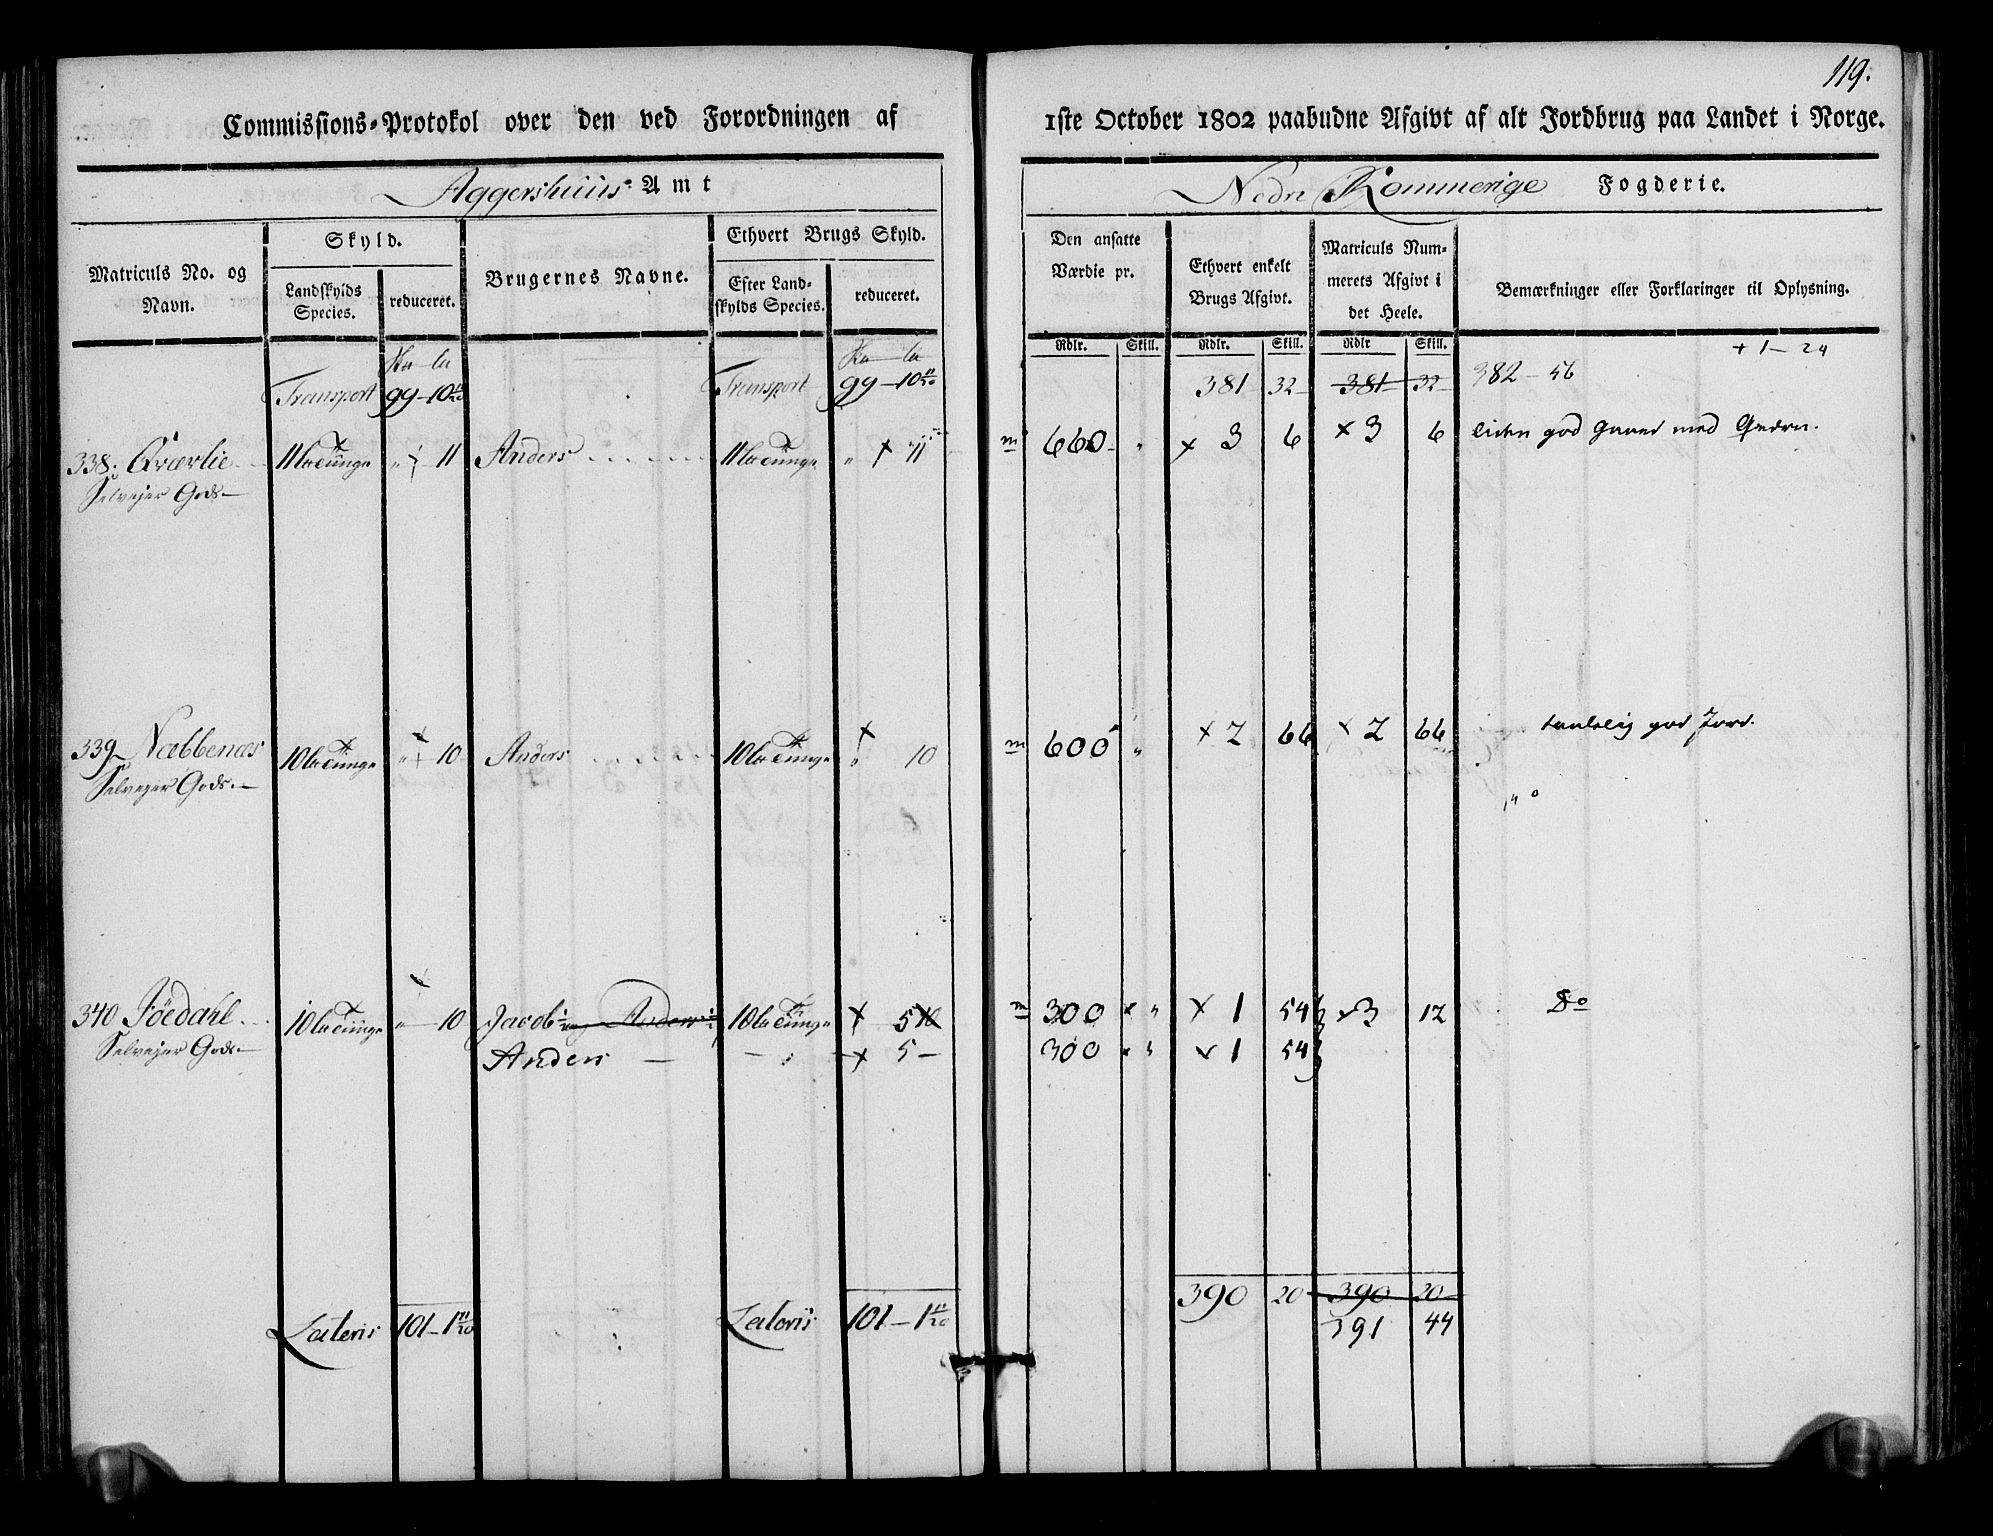 119.
Commissions-Protokol over den ved Forordningen af 1ste October 1802 paabudne Afgivt af alt Jordbrug paa Landet i Norge.
Aggershuus Amt
Nedre Rommerige Fogderie.
Matriculs No. og Navn.
Skyld.
Landskylds Species.
reduceret.
Brugernes Navne.
Ethvert Brugs Skyld.
Efter Landskylds Species.
reduceret.
Den ansatte Værdie pr.
Rdlr. Skill.
Ethvert enkelt Brugs Afgivt.
Rdlr. Skill.
Matriculs Nummerets Afgivt i det Heele.
Rdlr Skill.
Bemærkninger eller Forklaringer til Oplysning.
+ 1 - 24
Transport 99 - 10 11/20 Transport 99 - 10 11/20 381 32 381 32 382 - 56
338. Qværlie 11 Tunge " + 11 Anders 11 Tunge " + 11 m 660 " x 3 6 x 3 6 liden god gaard med Qværn.
Selvejer Gods
339 Næbbenæs 10 Tunge " + 10 Anders 10 Tunge " 10 m 600 " x 2 66 x 2 66 god Jord.
Selvejer Gods
340 Jöedahl 10 Tunge " 10 Jacob og Anders 10 Tunge x 5 10 m 300 " x 1 54 x 3 12 Do
Selvejer Gods Anders x 5 300 " x 1 54
390 20 390 20
Lateris 101 - 1 11/20 Lateris 101 - 1 11/20 391 44